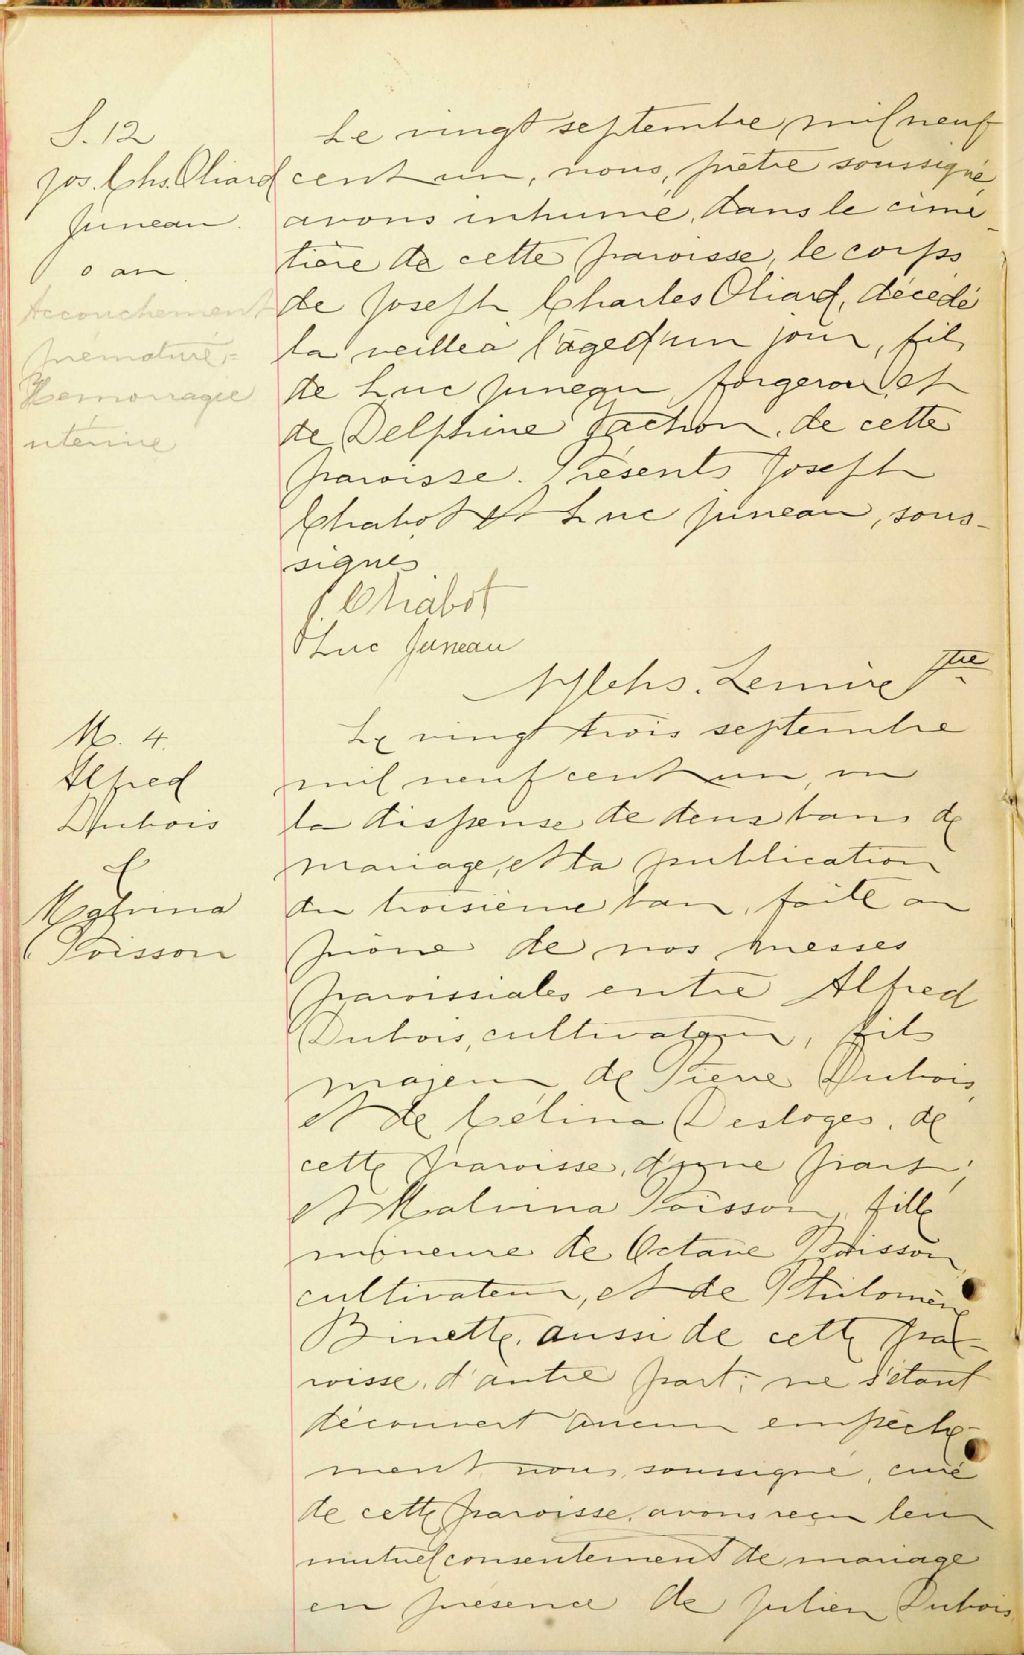 S. 12
Jos. Chs. Oliard
Juneau.
0 an
Accouchement
prematuré =
Hemorragie
utérine
Le vingt septembre mil neuf
cent un, nous, prêtre soussigné
avons inhumé, dans le cime-
tière de cette paroisse, le corps
de Joseph Charles Oliard, décédé
la veille à l'âge d'un jour, fils
de Luc Juneau forgeron et
de Delphine Vachon, de cette
paroisse. Présents Joseph
Chabot et Luc Juneau, sous-
signés
J. Chabot
Luc Juneau
Chs. Lemire Ptre
M. 4.
Alfred
Dubois
&
Malvina
Poisson
Le vingt trois septembre
mil neuf cent un, vu
la dispense de deux bans de
mariage, et la publication
du troisième ban, faite au
prône de nos messes
paroissiales entre Alfred
Dubois, cultivateur, fils
majeur de Pierre Dubois,
et de Célina Desloges, de
cette paroisse, d'une part;
et Malvina Poisson, fille
mineure de Octave Poisson,
cultivateur, et de Philomène
Binette, aussi de cette pa-
roisse, d'autre part; ne s'étant
découvert aucun empêche-
ment, nous, soussigné, curé
de cette paroisse, avons reçu leur
mutuel consentement de mariage
en présence de Julien Dubois